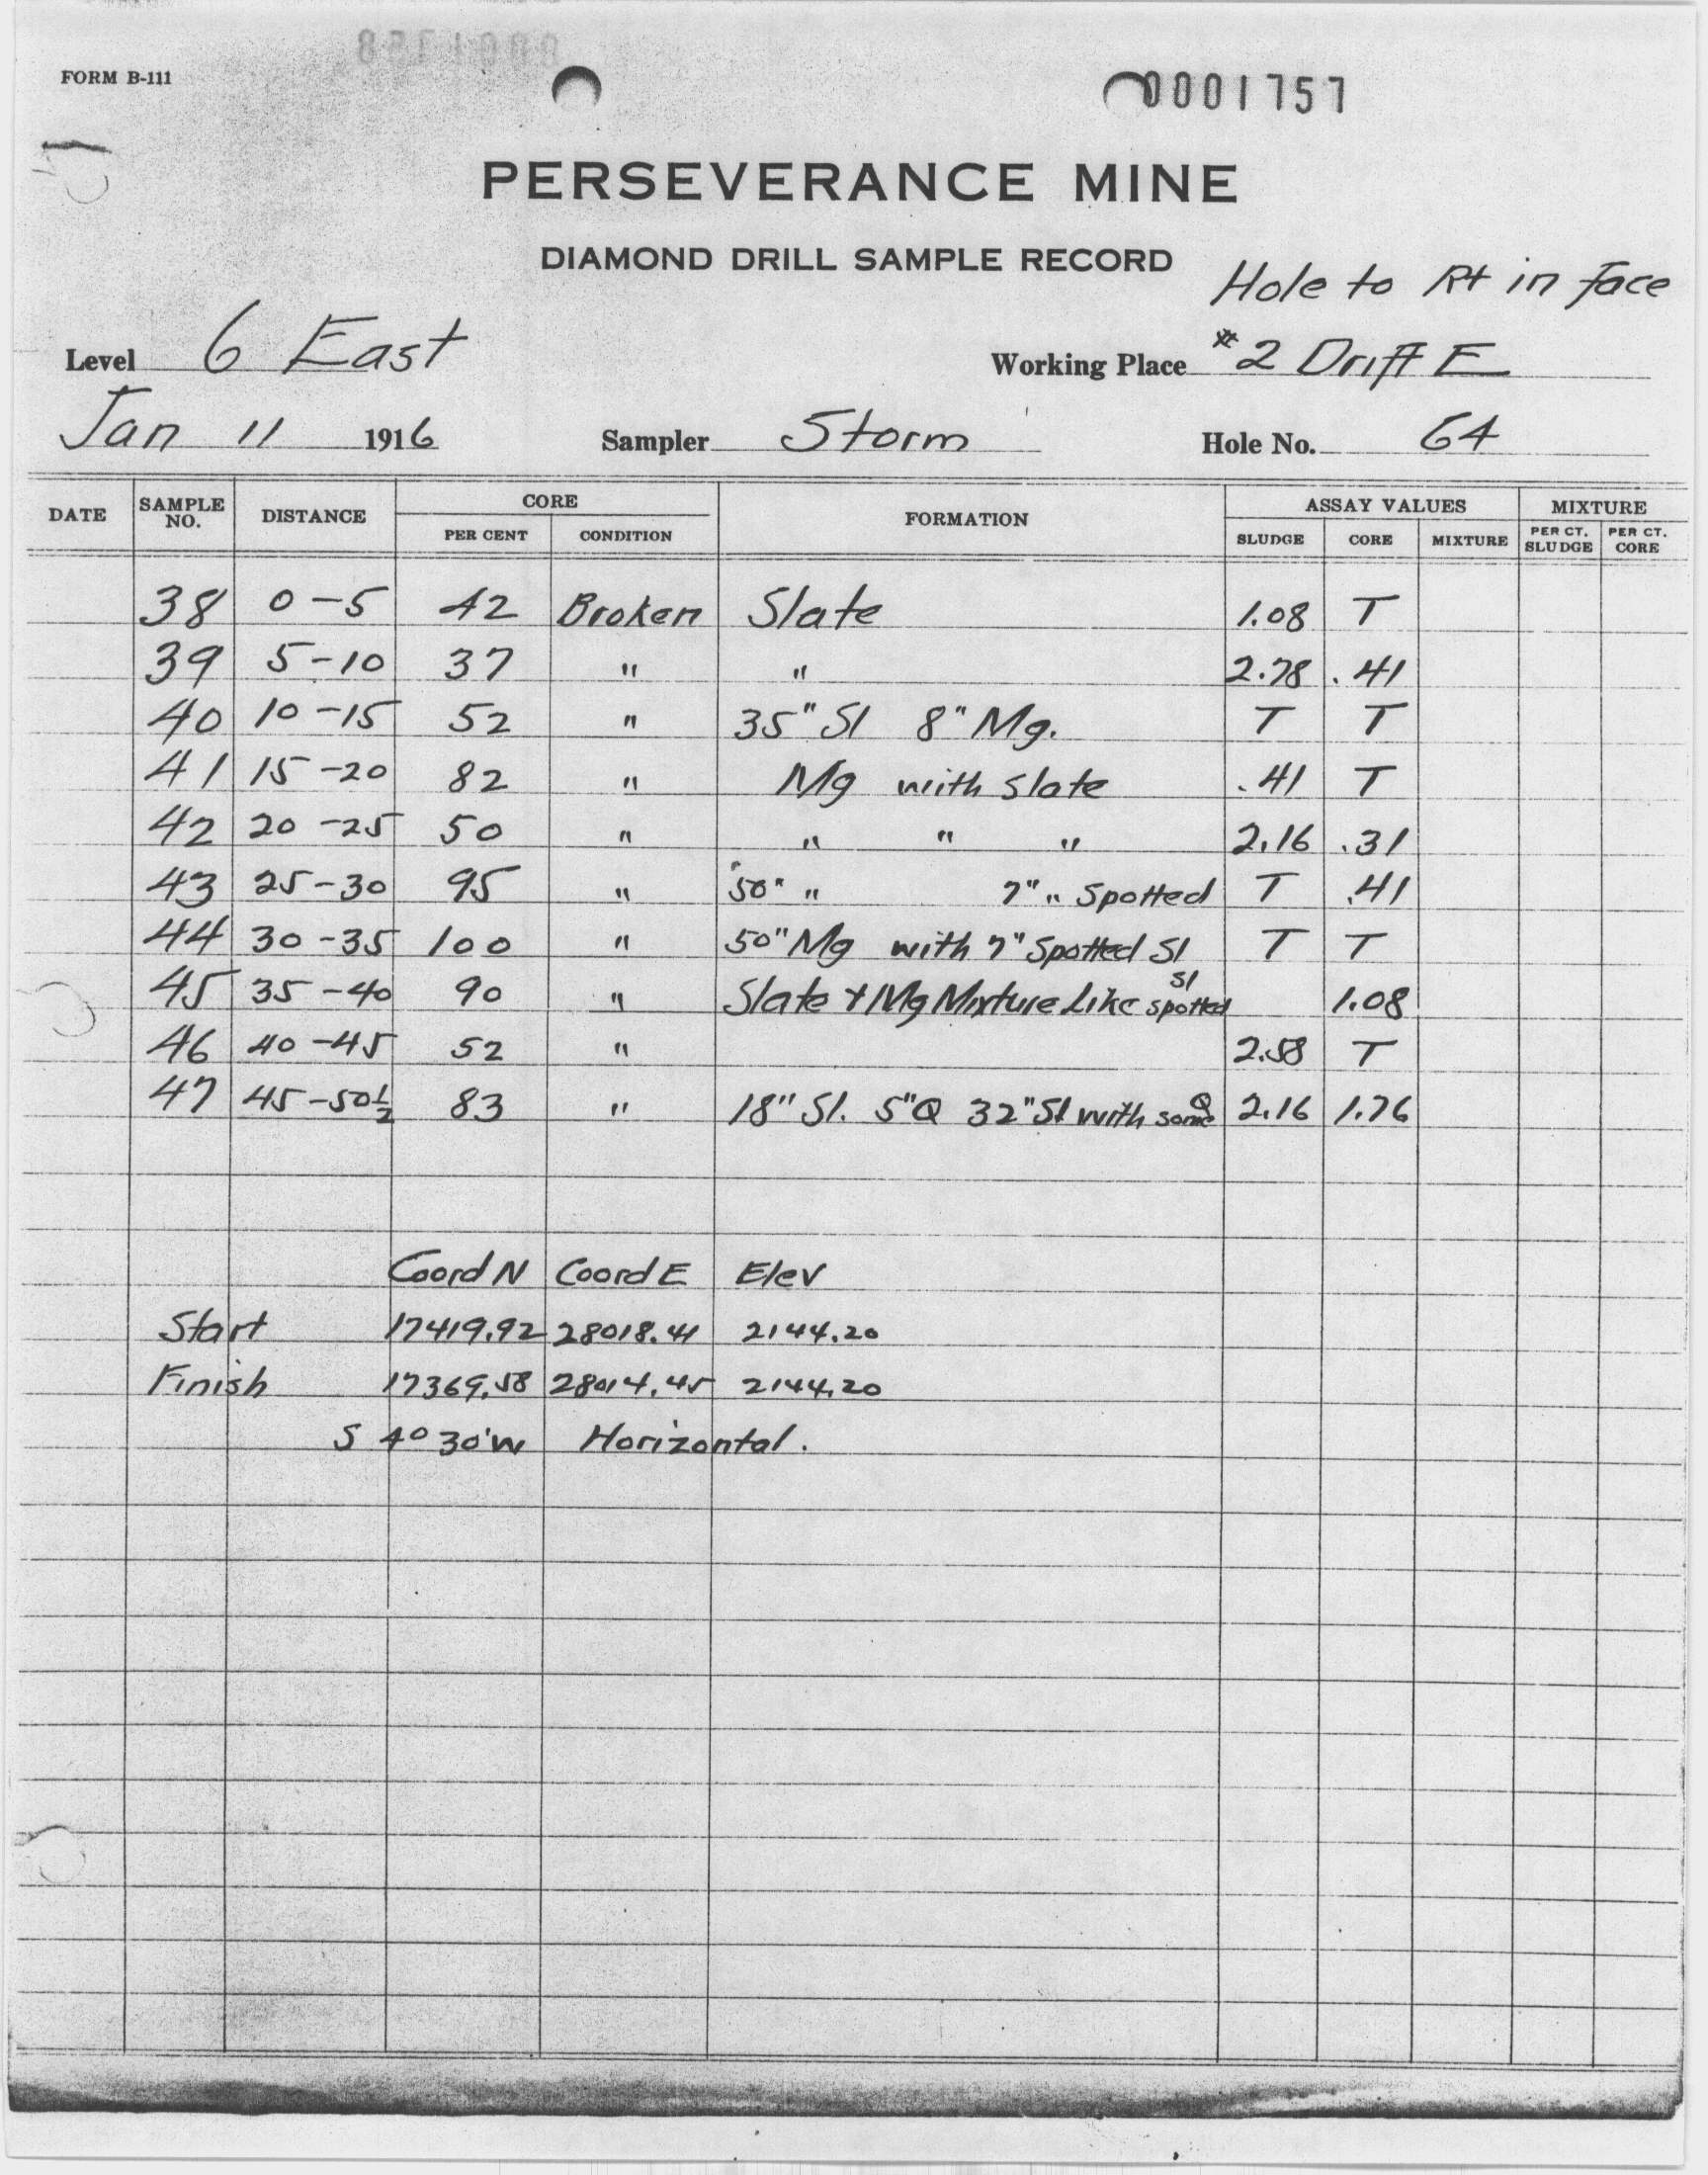 FORM B-111
0001757
PERSEVERANCE MINE
DIAMOND DRILL SAMPLE RECORD
Hole to Rt in Face
Level 6 East Working Place #2 Drift E
Jan 11 1916 Sampler Storm Hole No. 64
DATE SAMPLE NO. DISTANCE CORE FORMATION ASSAY VALUES MIXTURE
PER CENT CONDITION SLUDGE CORE MIXTURE PER CT. SLUDGE PER CT. CORE
38 0-5 42 Broken Slate 1.08 T
39 5-10 37 " " 2.78 .41
40 10-15 52 " 35" Sl 8" Mg. T T
41 15-20 82 " Mg with slate .41 T
42 20-25 50 " " " " 2.16 .31
43 25-30 95 " 50" " 7" " Spotted T .41
44 30-35 100 " 50" Mg with 7" Spotted Sl T T
45 35-40 90 " Slate + Mg Mixture Like spotted Sl 1.08
46 40-45 52 " 2.58 T
47 45-50½ 83 " 18" Sl. 5" Q 32" Sl with some Q 2.16 1.76
Coord N Coord E Elev
Start 17419.92 28018.41 2144.20
Finish 17369.58 28014.45 2144.20
S 4° 30' W Horizontal.